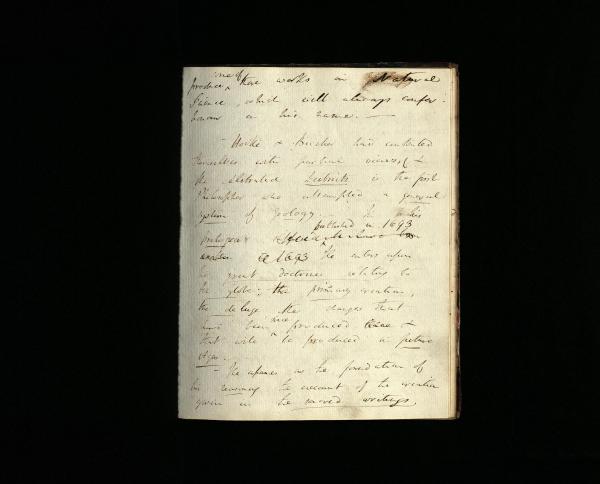 one of
produce those works in Natural
Science, which will always confer
honour on his name. —
- Hooke & had contented
themselves with partial views, &
the celebrated Leibnitz is the first
Philosopher who attempted a general
system of Geology. In his
published in 1693
Protogaea
1693 He enters upon
the great Doctrines relating to
the globe; the primary creation,
the deluge, the changes that
have been since produced &
that will be produced in future
Ages. —
- He assumes as the foundation of
his reasoning the account of the creation
given in the sacred writings,